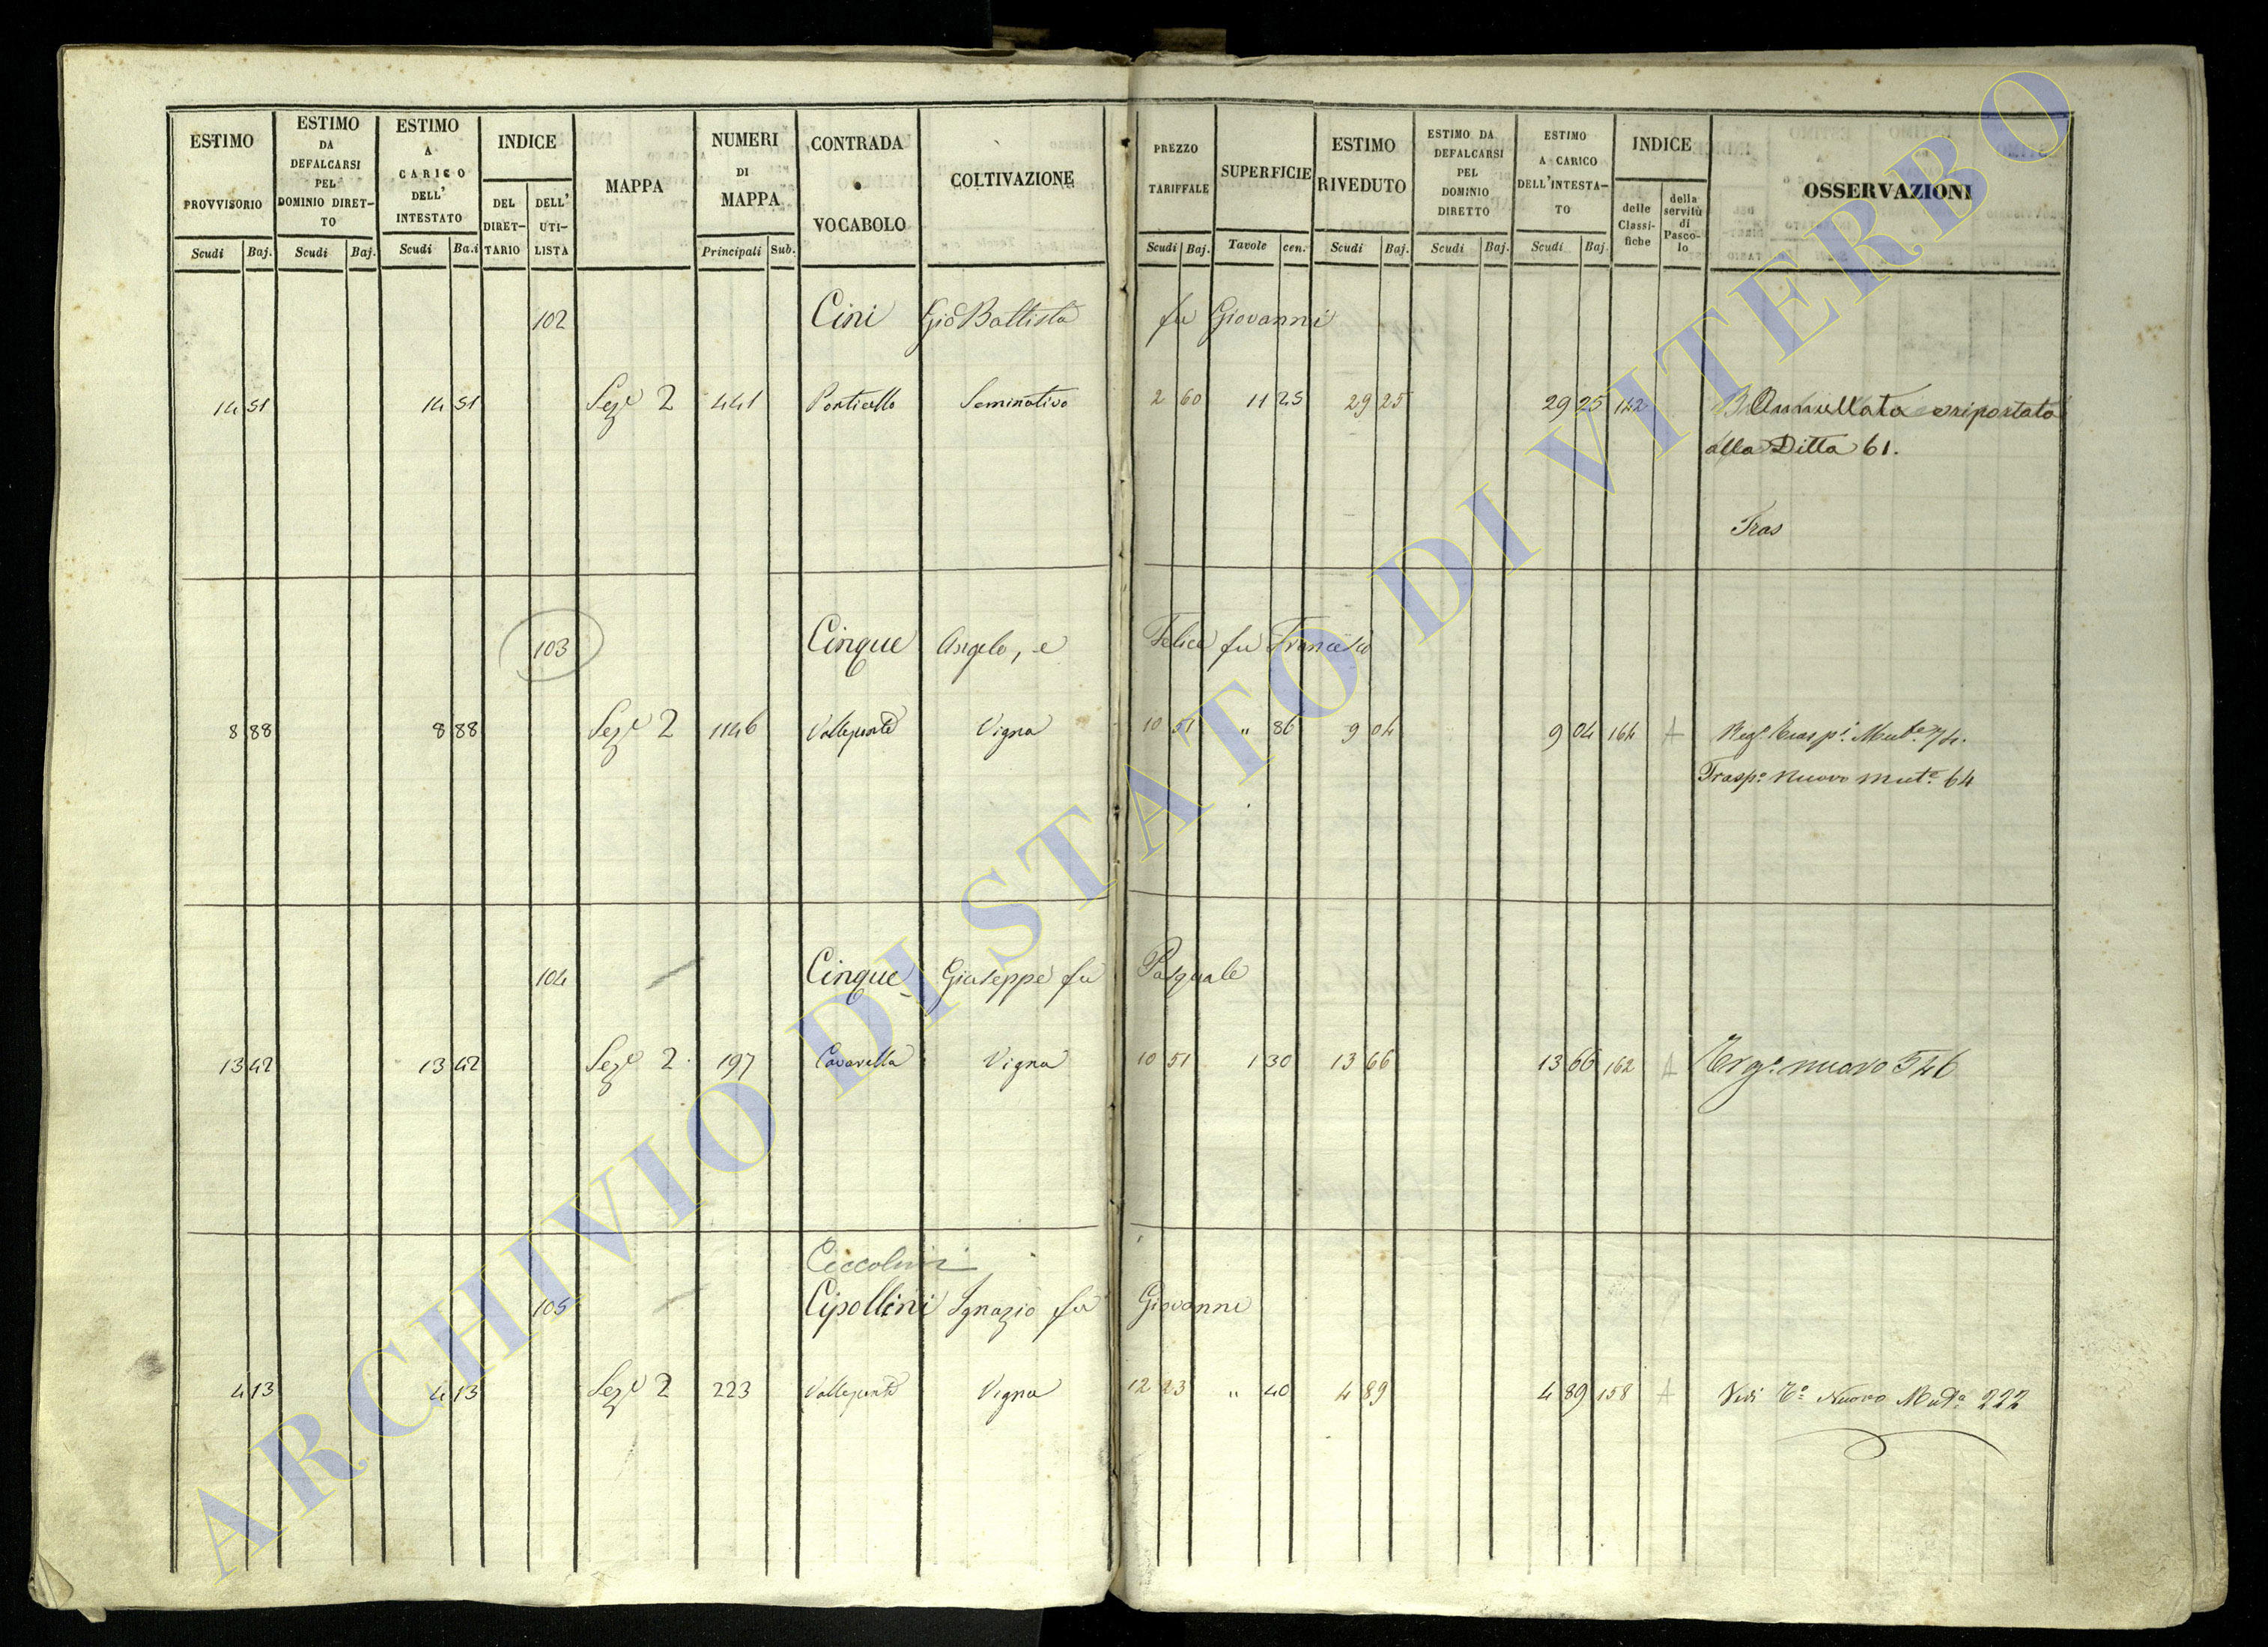 ESTIMO PROVVISORIO Scudi Baj.
ESTIMO DA DEFALCARSI PEL DOMINIO DIRET-TO Scudi Baj.
ESTIMO A CARICO DELL' INTESTATO Scudi Ba.i
INDICE DEL DIRET-TARIO DELL' UTI-LISTA
MAPPA
NUMERI DI MAPPA Principali Sub.
CONTRADA o VOCABOLO
COLTIVAZIONE
PREZZO TARIFFALE Scudi Baj.
SUPERFICIE Tavole cen.
ESTIMO RIVEDUTO Scudi Baj.
ESTIMO DA DEFALCARSI PEL DOMINIO DIRETTO Scudi Baj.
ESTIMO A CARICO DELL'INTESTA-TO Scudi Baj.
INDICE delle Classi-fiche della servitù di Pasco-lo
OSSERVAZIONI
102 Cini Gio Battista fu Giovanni
14 51 14 51 Sez.e 2 441 Ponticello Seminativo 2 60 11 25 29 25 29 25 142 Annullata e riportata
alla Ditta 61.
Tras
103 Cinque Angelo, e Felice fu Francesco
8 88 8 88 Sez.e 2 1146 Valleponte Vigna 10 51 " 86 9 04 9 04 164 A
Trasp.o nuovo mut.e 64
104 Cinque Giuseppe fu Pasquale
13 42 13 42 Sez.e 2 197 Cavarella Vigna 10 51 1 30 13 66 13 66 162 A nuovo 546
Ciccolini
105 Cipollini Ignazio fu Giovanni
4 13 4 13 Sez.e 2 223 Valleponte Vigna 12 23 " 40 4 89 4 89 158 A Vedi T.o Nuovo Mut.a 222
ARCHIVIO DI STATO DI VITERBO